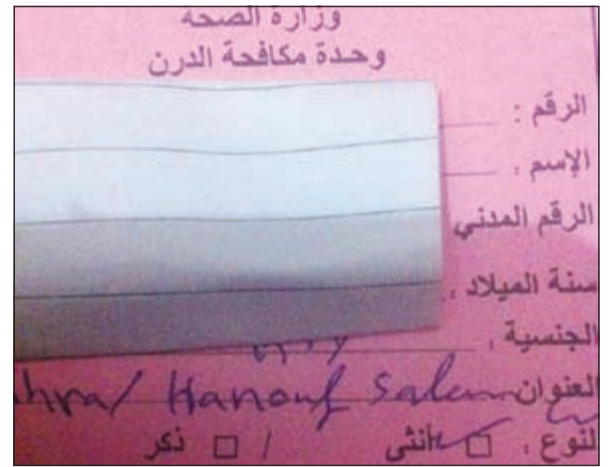 وزارة الصحه
وحدة مكافحة الدرن
الرقم :
الإسم :
الرقم المدني
سنة الميلاد :
الجنسية :
العنوان Hanouf Salem
لنوع : □ أنثى / □ ذكر